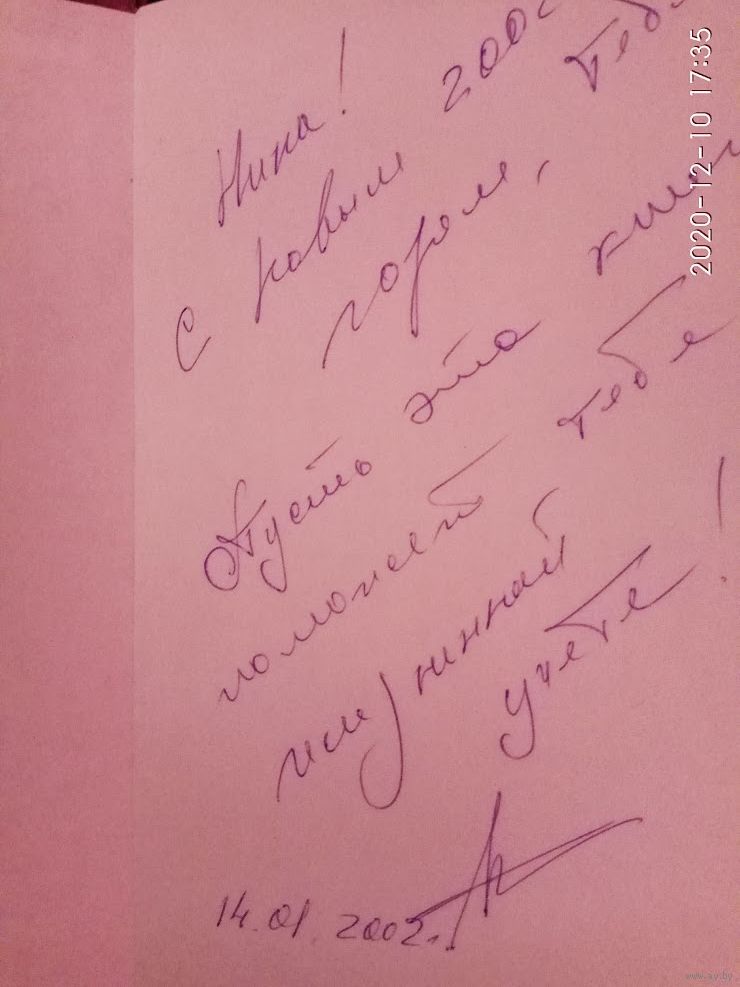 Нина!
С новым
годом,
Пусть эта
поможет тебе
жизненной учебе!
14.01.2002г.
2020-12-10 17:35
www.ay.by